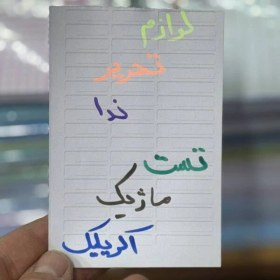 لوازم
تحریر
ندا
تست
ماژیک
اکریلیک